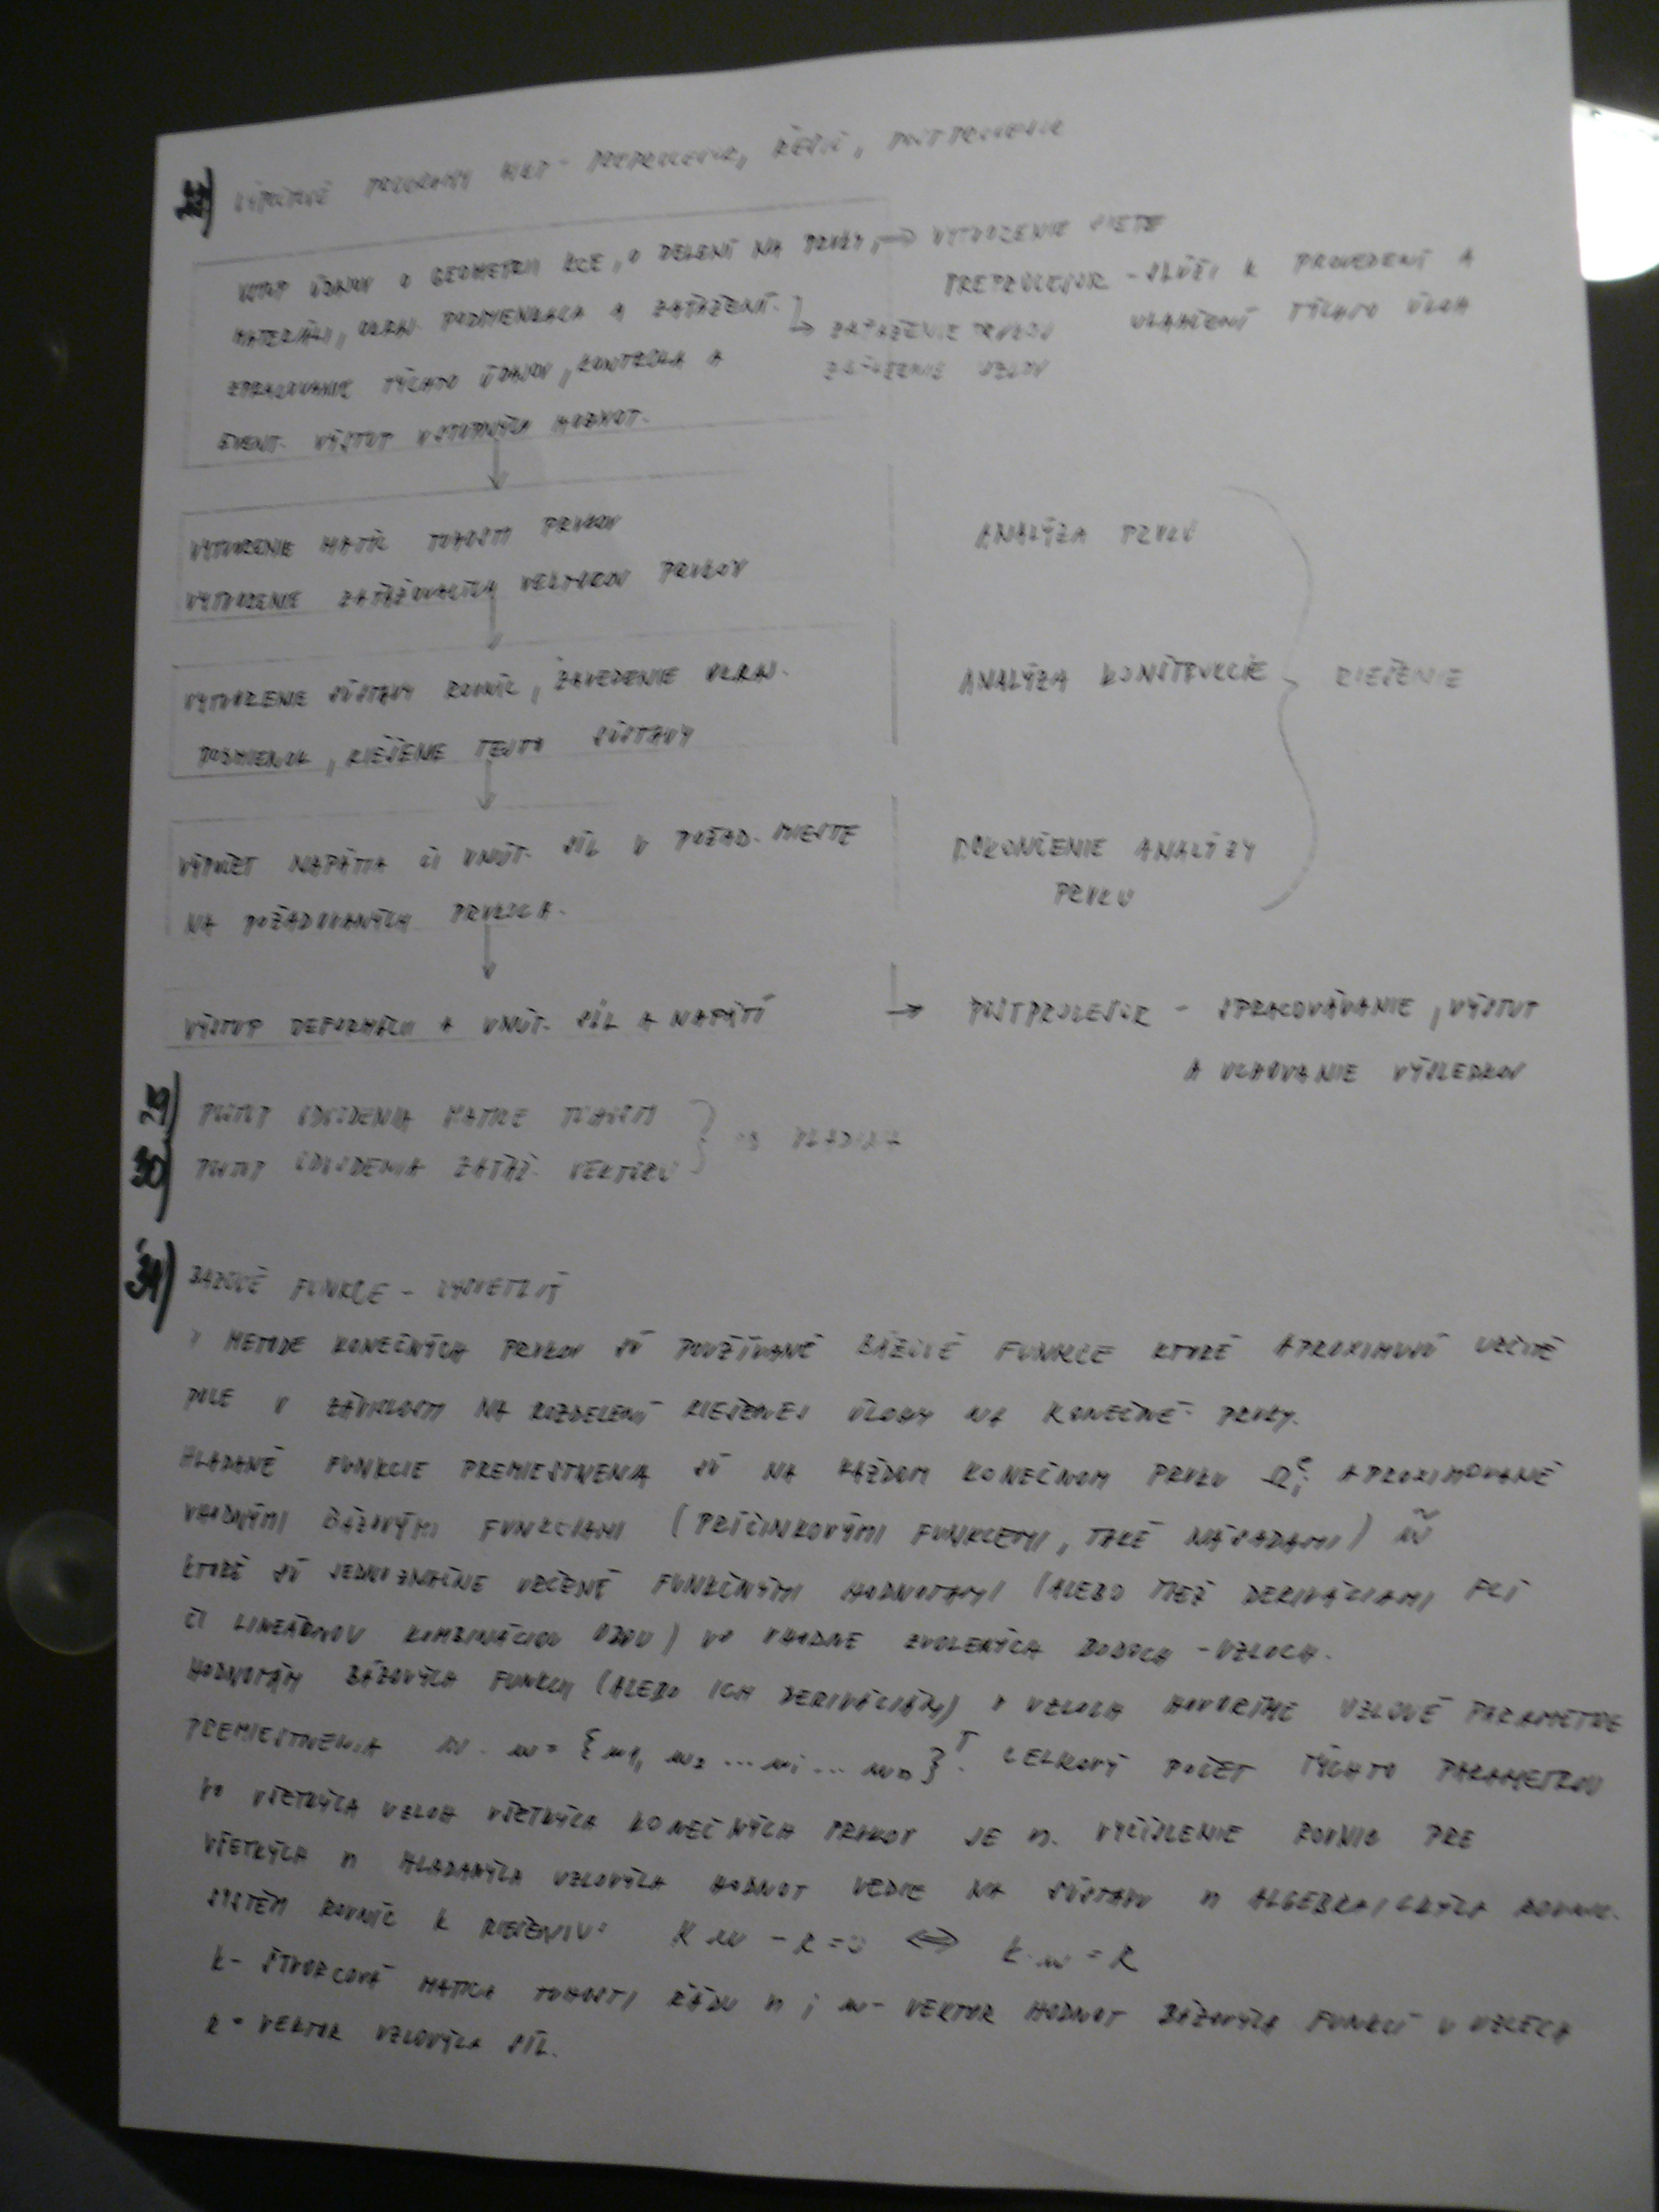 VÝPOČTOVÉ PROGRAMY MKP - PREPROCESOR, ŘEŠIČ, POSTPROCESOR
VSTUP ÚDAJOV O GEOMETRII KCE, O DELENÍ NA PRVKY, → VYTVORENIE SIETE
PREPROCESOR - SLÚŽI K PROVEDENÍ A
MATERIÁLI, OKRAJ. PODMIENKACH A ZAŤAŽENÍ. → ZAŤAŽENIE PRVKOV
TÝCHTO ÚLOH
ZPRACOVANIE TÝCHTO ÚDAJOV, KONTROLA A
ZAŤAŽENIE UZLOV
EVENT. VÝSTUP VSTUPNÝCH HODNOT.
VYTVORENIE MATÍC TUHOSTI PRVKOV
ANALÝZA PRVKU
VYTVORENIE ZAŤAŽOVACÍCH VEKTOROV PRVKOV
VYTVORENIE SÚSTAVY ROVNÍC, ZAVEDENIE OKRAJ.
ANALÝZA KONŠTRUKCIE
RIEŠENIE
PODMIENOK, RIEŠENIE TEJTO SÚSTAVY
VÝPOČET NAPÄTIA ČI VNÚT. SÍL V POŽAD. MIESTE
DOKONČENIE ANALÝZY
PRVKU
NA POŽADOVANÝCH PRVKOCH.
VÝSTUP DEFORMÁCII A VNÚT. SÍL A NAPÄTÍ
→ POSTPROCESOR - SPRACOVÁVANIE, VÝSTUP
A UCHOVANIE VÝSLEDKOV
POSTUP ODVODENIA MATICE TUHOSTI
POSTUP ODVODENIA ZAŤAŽ. VEKTORU
BÁZOVÉ FUNKCE - VYSVETLIŤ
V METODE KONEČNÝCH PRVKOV SÚ POUŽÍVANÉ BÁZOVÉ FUNKCE KTORÉ APROXIMUJÚ URČITÉ
POLE V ZÁVISLOSTI NA ROZDELENÍ RIEŠENEJ ÚLOHY NA KONEČNÉ PRVKY.
HLADANÉ FUNKCIE PREMIESTNENIA SÚ NA KAŽDOM KONEČNOM PRVKU Ωᵢᵉ APROXIMOVANÉ
VHODNÝMI BÁZOVÝMI FUNKCIAMI (PRÍČINKOVÝMI FUNKCEMI, TAKÉ NÁSADAMI) ũ
KTORÉ SÚ JEDNOZNAČNE URČENÉ FUNKČNÝMI HODNOTAMI (ALEBO TIEŽ DERIVÁCIAMI FCÍ
ČI LINEÁRNOU KOMBINÁCIOU OBOU) VO VHODNE ZVOLENÝCH BODOCH - UZLOCH.
HODNOTÁM BÁZOVÝCH FUNKCII (ALEBO ICH DERIVÁCIÁM) V UZLOCH HOVORÍME UZLOVÉ PARAMETRE
PREMIESTNENIA u. u = {u1, u2 ... ui ... un}ᵀ. CELKOVÝ POČET TÝCHTO PARAMETROV
VO VŠETKÝCH UZLOCH VŠETKÝCH KONEČNÝCH PRVKOV JE n. VYČÍSLENIE ROVNIC PRE
VŠETKÝCH n HLADANÝCH UZLOVÝCH HODNOT VEDIE NA SÚSTAVU n ALGEBRAICKÝCH ROVNIC.
SYSTÉM ROVNÍC K RIEŠENIU: K u - R = 0 ⇔ K·u = R
K - ŠTVORCOVÁ MATICA TUHOSTI RÁDU n ; u - VEKTOR HODNOT BÁZOVÝCH FUNKCÍ V UZLECH
R - VEKTOR UZLOVÝCH SÍL.